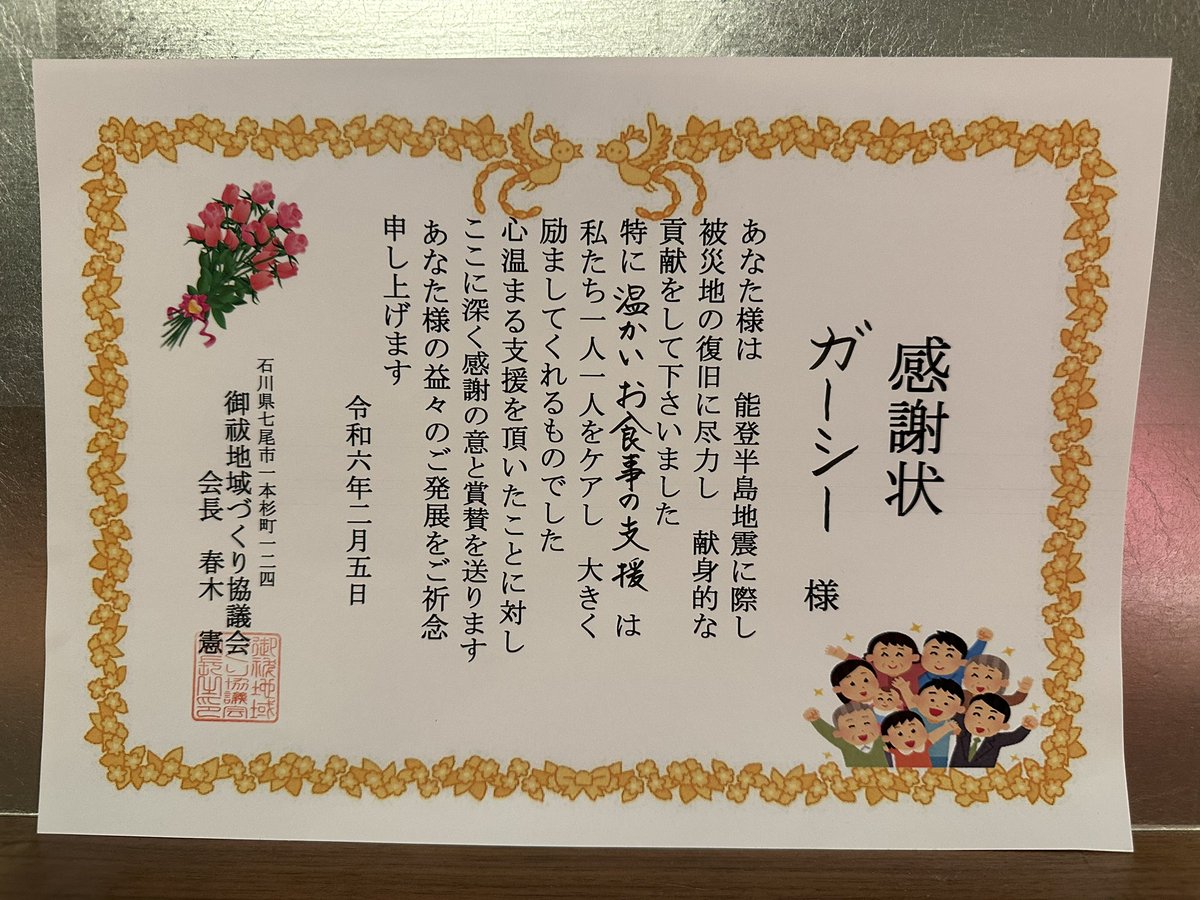 感謝状
ガーシー 様
あなた様は 能登半島地震に際し
被災地の復旧に尽力し 献身的な
貢献をして下さいました
特に 温かいお食事の支援 は
私たち一人一人をケアし 大きく
励ましてくれるものでした
心温まる支援を頂いたことに対し
ここに深く感謝の意と賞賛を送ります
あなた様の益々のご発展をご祈念
申し上げます
令和六年二月五日
石川県七尾市一本杉町一二四
御祓地域づくり協議会
会長 春木 憲
御祓地域
協議会